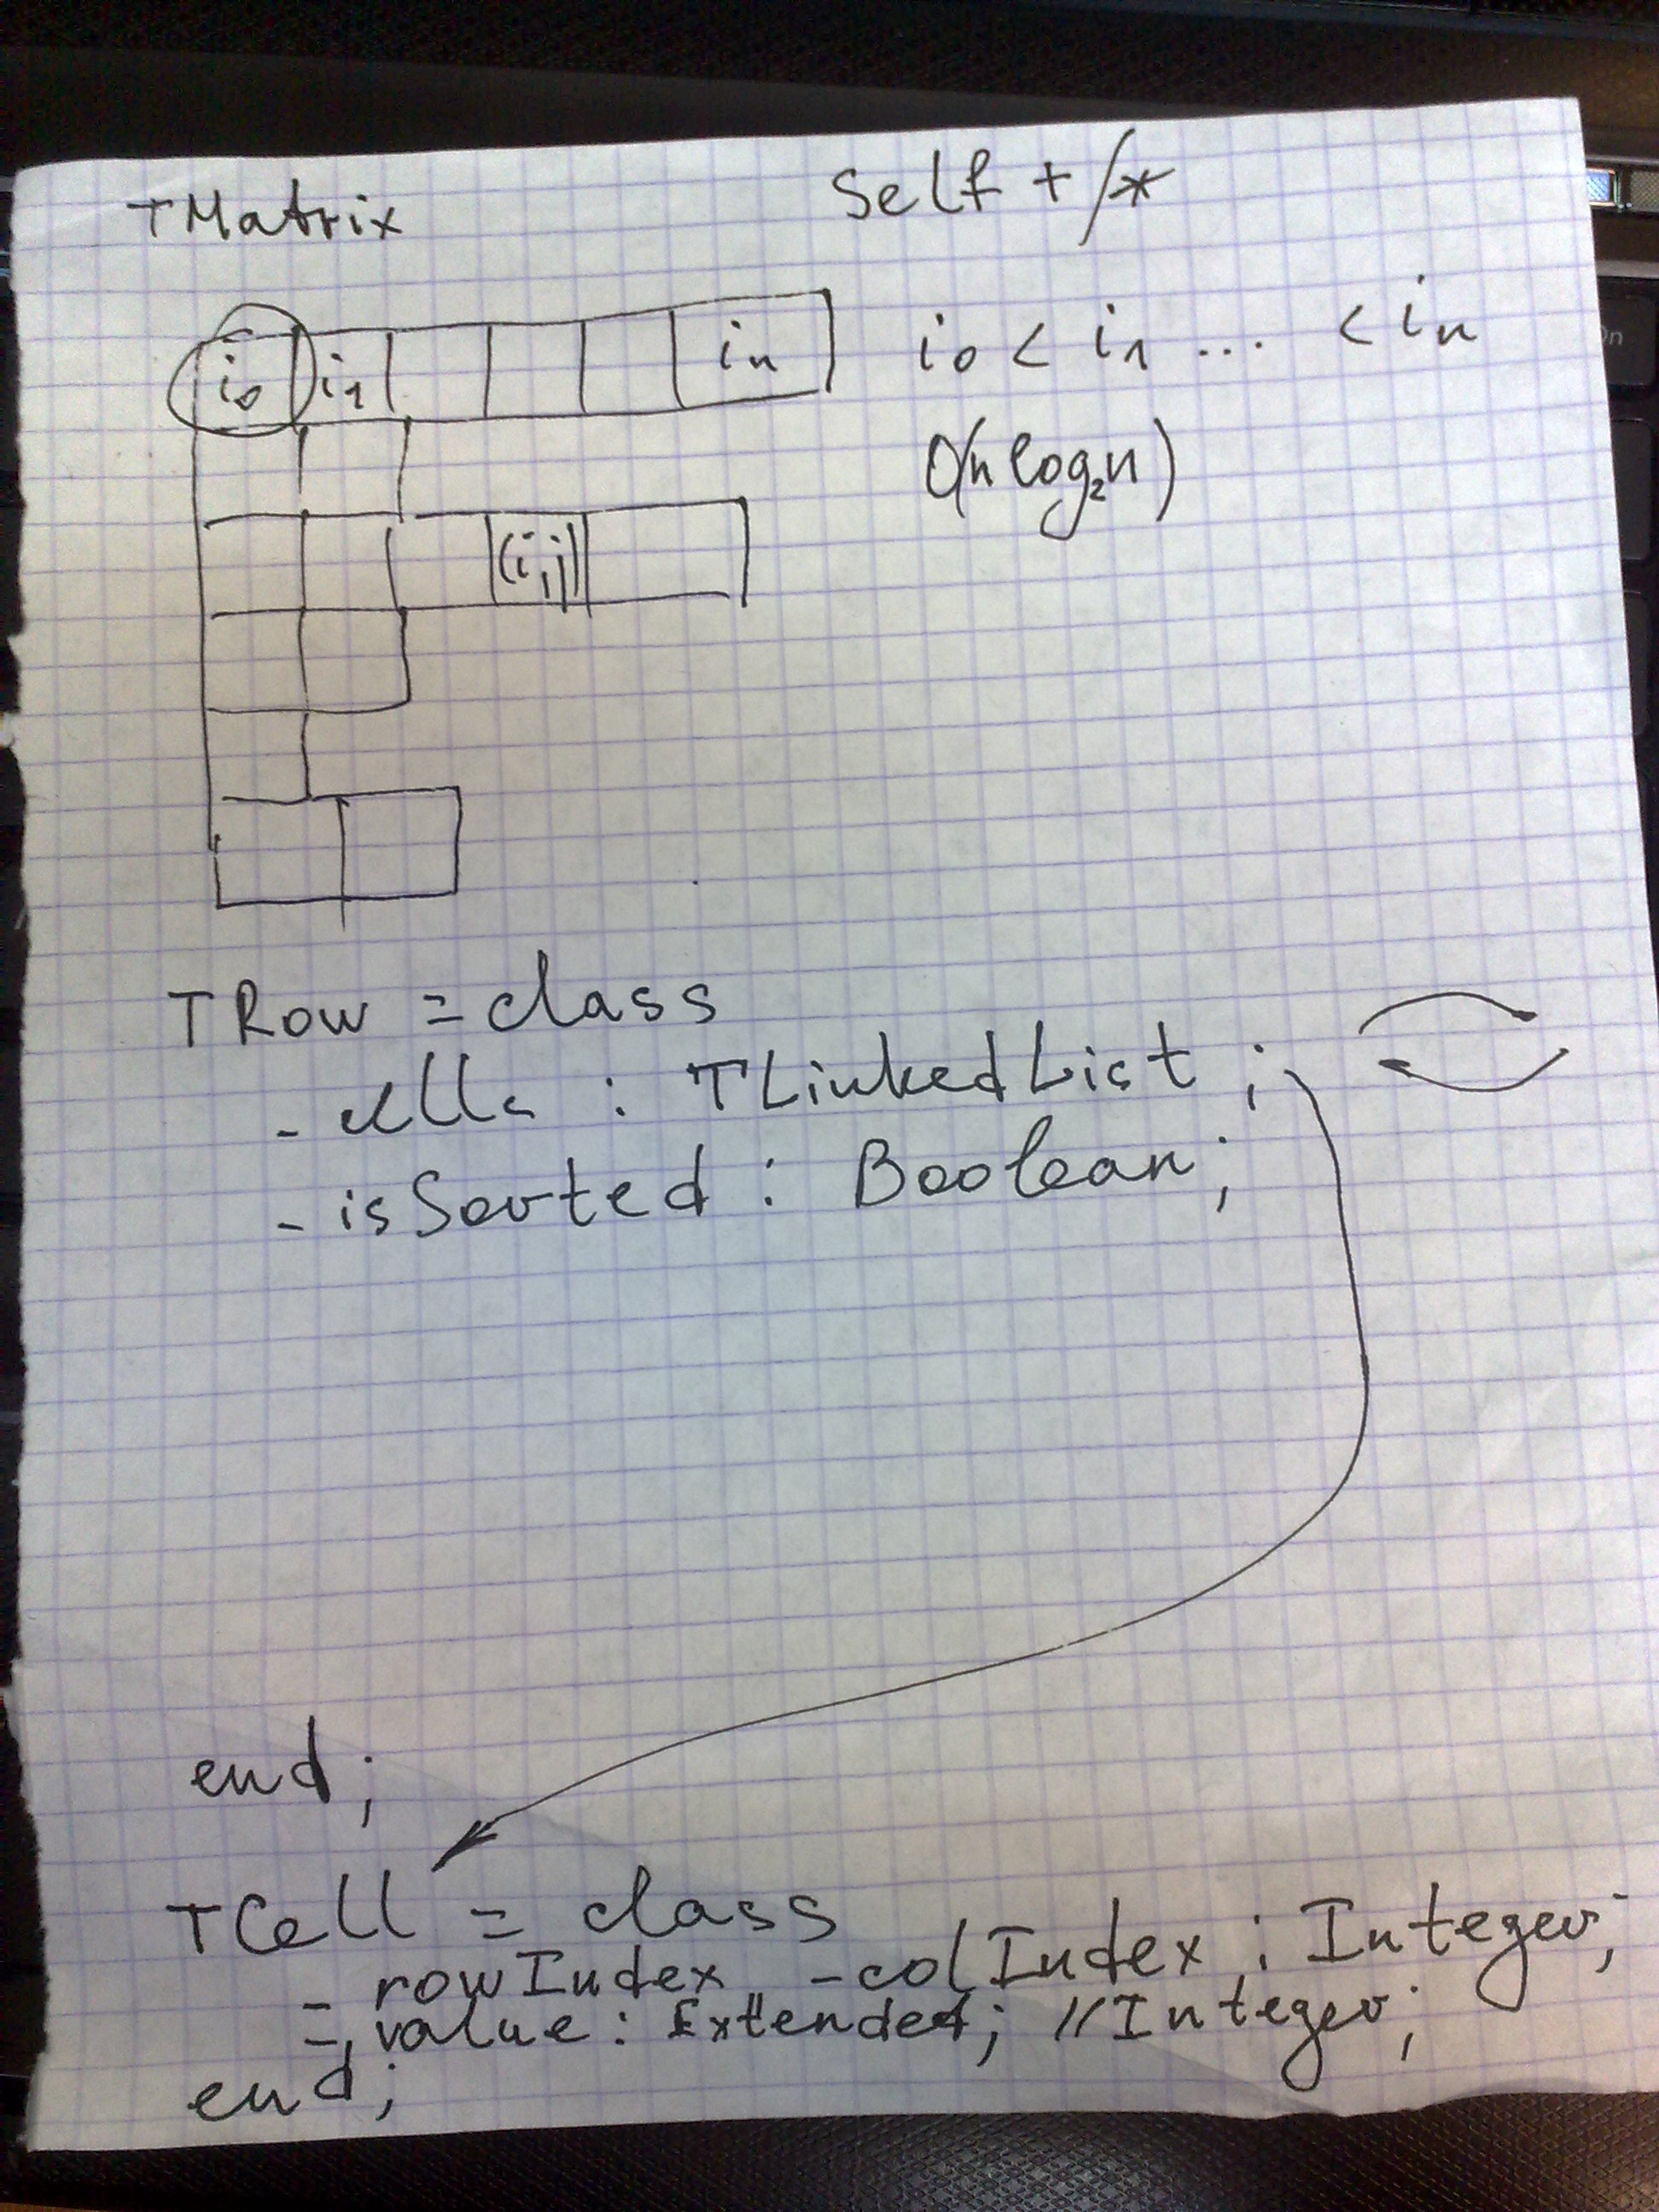 TMatrix Self + /*
i₀ i₁ iₙ i₀ < i₁ ... < iₙ
O(n log₂n)
(i,j)
TRow = class
_cells : TLinkedList ;
_isSorted : Boolean;
end;
TCell = class
_rowIndex _colIndex : Integer;
_value : Extended; //Integer;
end;